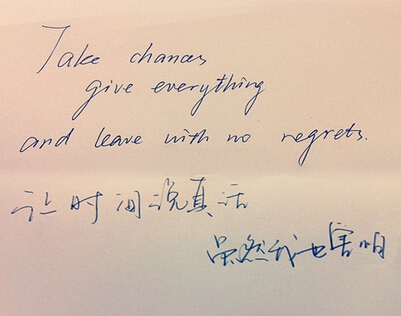 Take chances
give everything
and leave with no regrets.
让时间说真话
虽然我也害怕